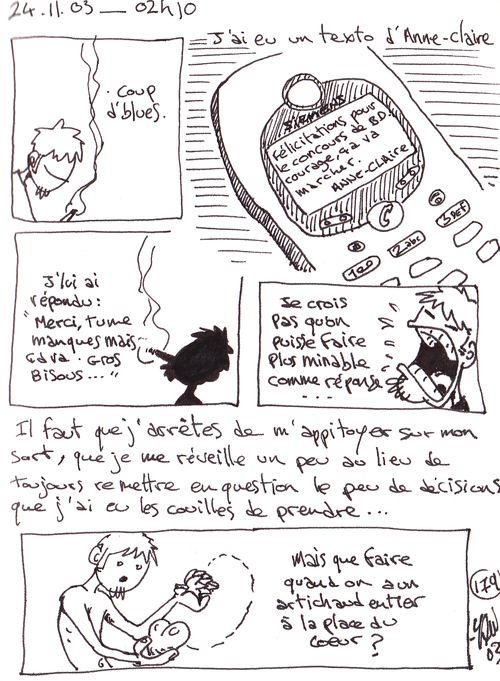 24.11.03 — 02h10
J'ai eu un texto d'Anne-Claire
. Coup
d'blues.
SIEMENS
Félicitations pour
le concours de BD.
Courage, ça va
marcher.
ANNE-CLAIRE
1 oo
2 abc
3 DEF
J'lui ai
répondu :
"Merci, tu me
manques mais
ça va. Gros
Bisous..."
Je crois
pas qu'on
puisse faire
plus minable
comme réponse
...
Il faut que j'arrêtes de m'appitoyer sur mon
sort, que je me réveille un peu au lieu de
toujours remettre en question le peu de décisions
que j'ai eu les couilles de prendre...
Mais que faire
quand on a un
artichaud entier
à la place du
coeur ?
179
03